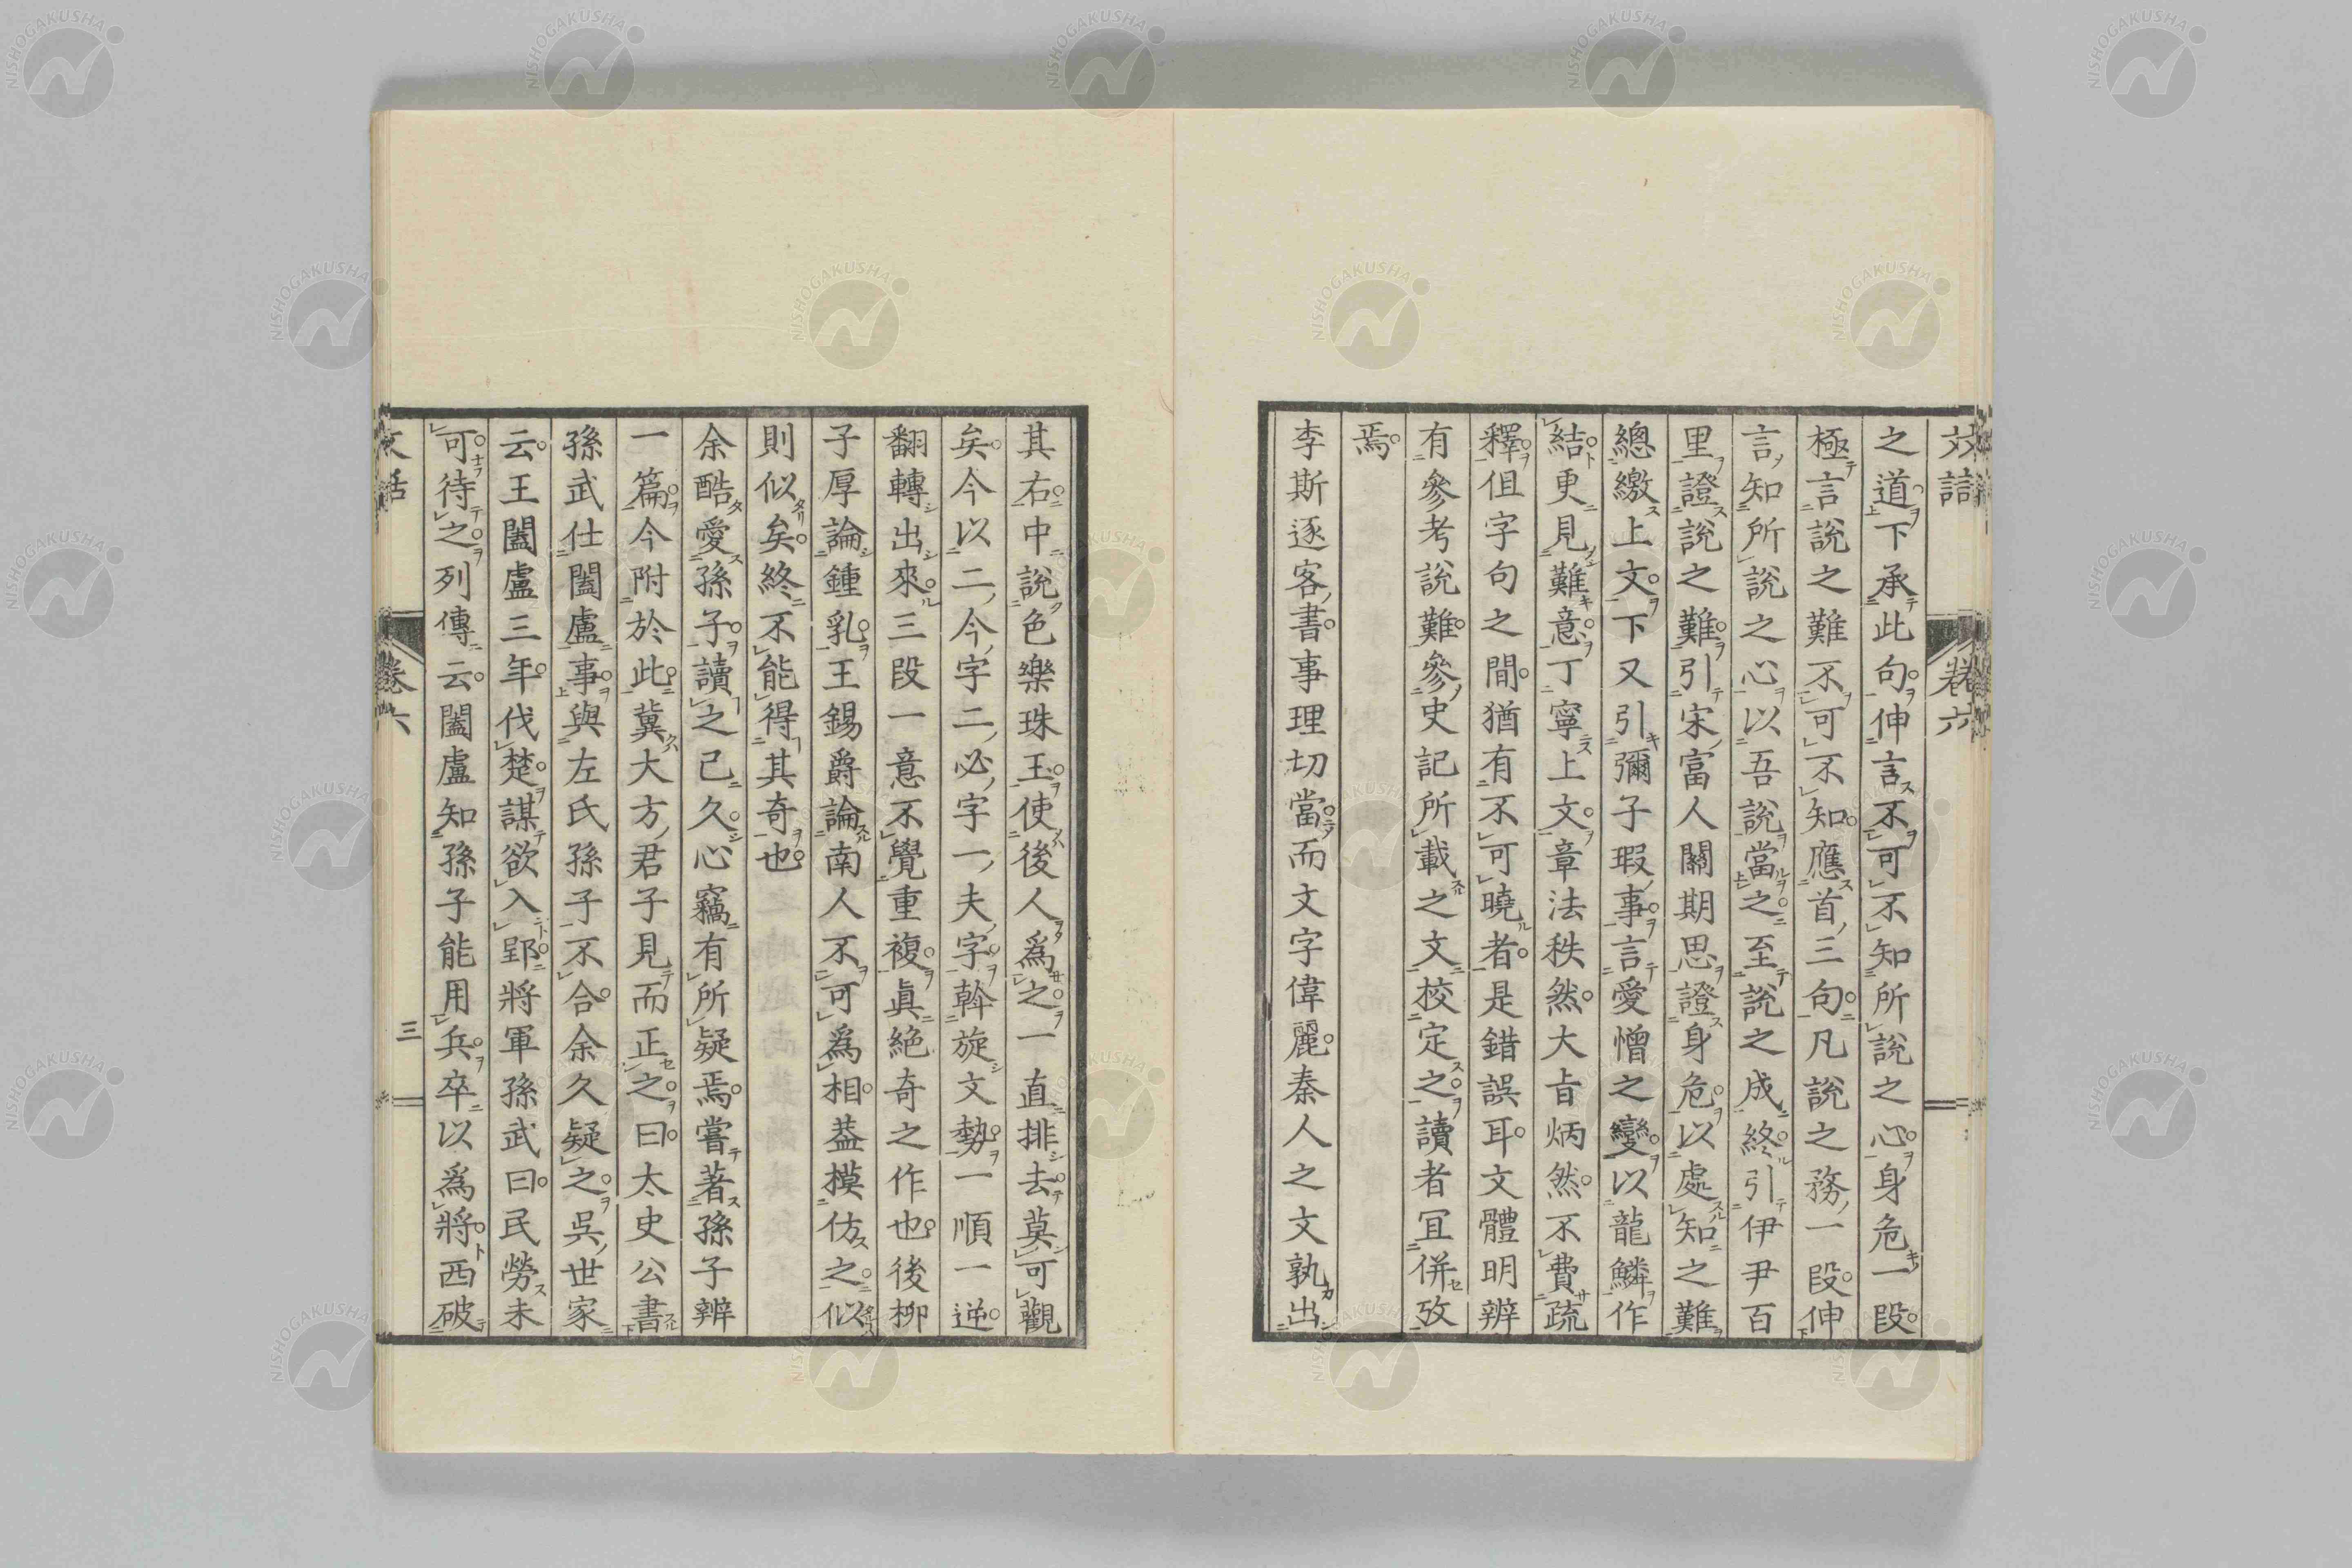 文話 卷六
之道。下承此句。伸言不可不知所說之心。身危一段。
極言說之難不可不知。應首三句。凡說之務一段。伸
言知所說之心以吾說當之。至說之成終。引伊尹百
里證說之難。引宋富人關期思證身危。以處知之難
總繳上文。下又引彌子瑕事。言愛憎之變。以龍鱗作
結。更見難意。丁寧上文。章法秩然。大旨炳然。不費疏
釋。但字句之間。猶有不可曉者。是錯誤耳。文體明辨
有參考說難。參史記所載之文校定之。讀者宜併攷
焉。
李斯逐客書。事理切當。而文字偉麗。秦人之文孰出
其右。中說色樂珠玉。使後人爲之。一直排去。莫可觀
矣。今以二今字二必字一夫字。斡旋文勢。一順一逆。
翻轉出來。三段一意不覺重複。眞絕奇之作也。後柳
子厚論鍾乳。王錫爵論南人不可爲相。葢摸仿之。似
則似矣。終不能得其奇也。
余酷愛孫子。讀之已久。心竊有所疑焉。嘗著孫子辨
一篇。今附於此。冀大方君子見而正之。曰。太史公書
孫武仕闔廬事。與左氏孫子不合。余久疑之。吳世家
云。王闔廬三年。伐楚。謀欲入郢。將軍孫武曰。民勞未
可待之。列傳云。闔廬知孫子能用兵。卒以爲將。西破
文話 卷六 三